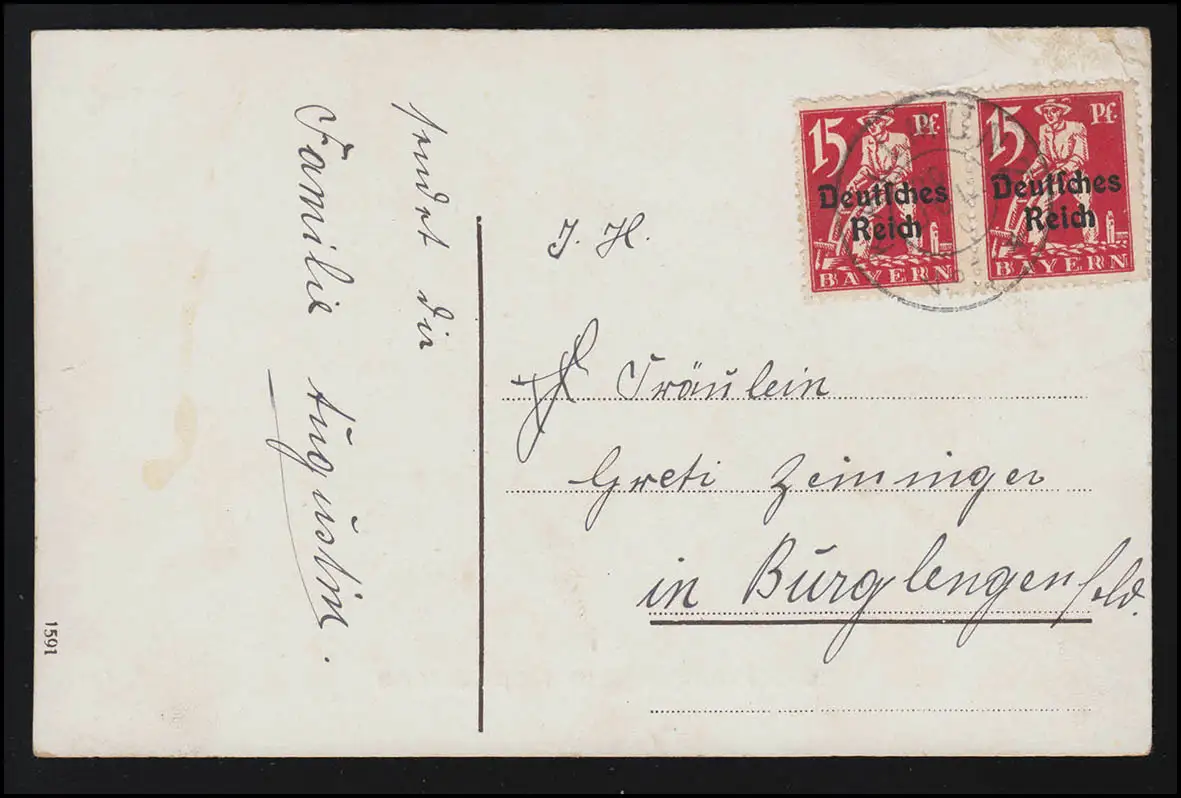 sendet dir
Familie Augustin.
J. H.
Fräulein
Greti Zeininger
in Burglengenfeld.
15 Pf.
Deutsches
Reich
BAYERN
15 Pf.
Deutsches
Reich
BAYERN
1591